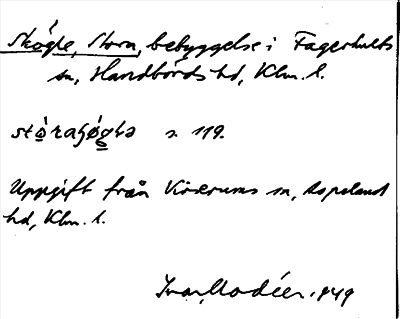 Skögle, Stora, bebyggelse i Fagerhults
sn, Handbörds hd, Klm. l.
s. 119.
Uppgift från Virserums sn, Aspeland
hd, Klm. l.
Ivar Modéer. 1949